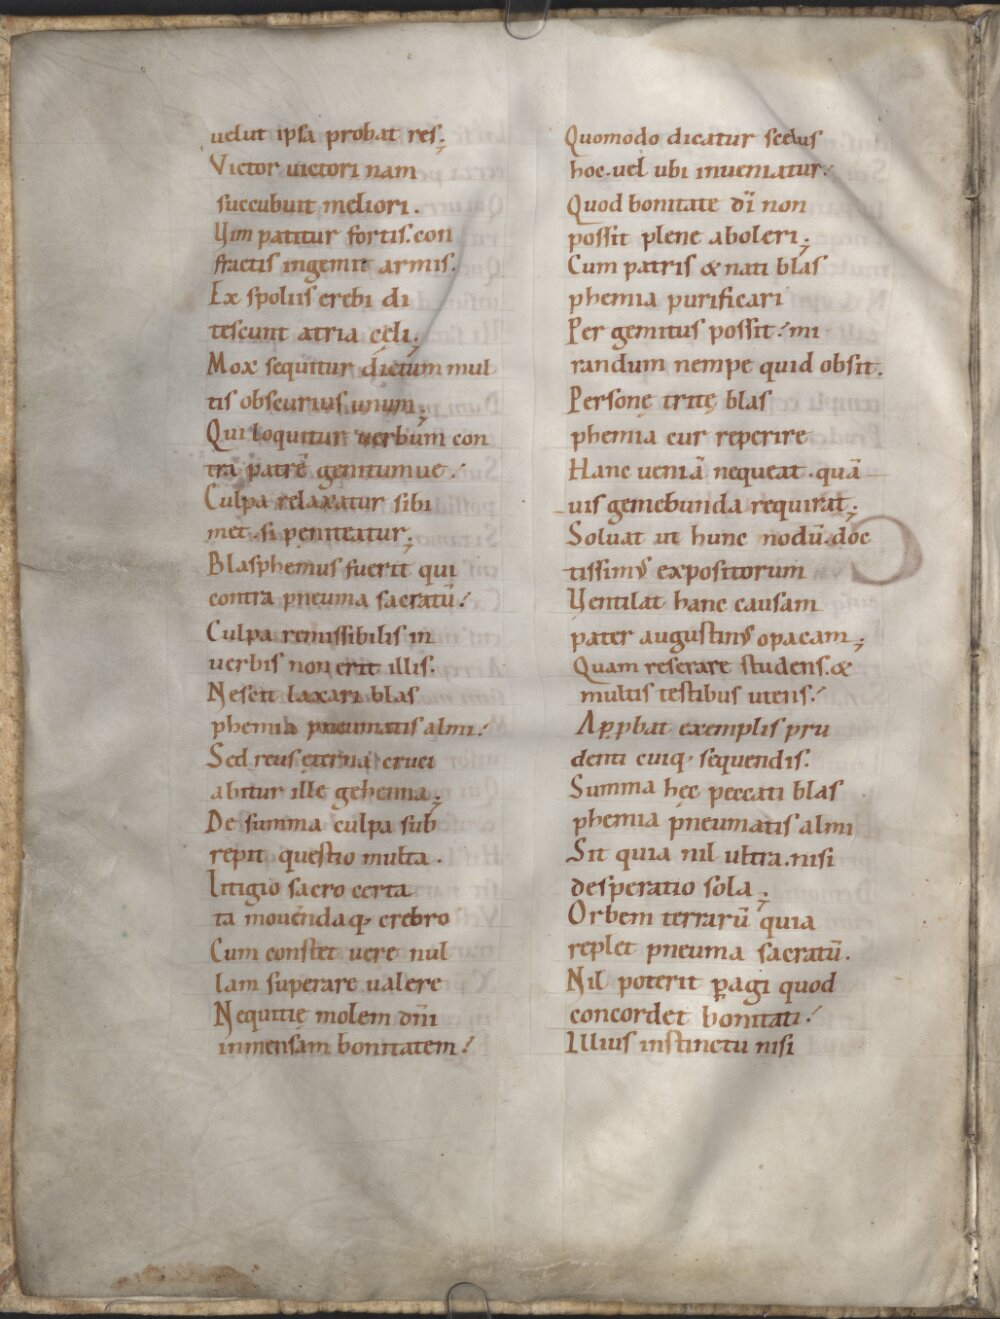 uelut ipsa probat res;
Victor uictori nam
succubuit meliori.
Vim patitur fortis. con
fractis ingemit armis.
Ex spoliis erebi di
tescunt atria cęli;
Mox sequitur dictum mul
tis obscurius unum;
Qui loquitur uerbum con
tra patrē genitumue.
Culpa relaxatur sibi
met. si peniteatur;
Blasphemus fuerit qui
contra pneuma sacratū.
Culpa remissibilis in
uerbis non erit illis.
Nescit laxari blas
phemia pneumatis almi.
Sed reus eterna cruci
abitur ille gehenna;
De summa culpa sub
repit questio multa.
Litigio sacro certa
ta mouenda q; crebro
Cum constet uere nul
lam superare ualere
Nequitię molem dn̄i
inmensam bonitatem.
Quomodo dicatur scelus
hoc. uel ubi inueniatur.
Quod bonitate dī non
possit plene aboleri;
Cum patris & nati blas
phemia purificari
Per gemitus possit. mi
randum nempe quid obsit.
Personę tritę blas
phemia cur reperire
Hanc ueniā nequeat. quā
uis gemebunda requirat;
Soluat ut hunc nodū. doc
tissimus expositorum
Ventilat hanc causam
pater augustinus opacam;
Quam reserare studens. &
multis testibus utens.
Ap̱p̱bat exemplis pru
denti cuiq; sequendis.
Summa hęc peccati blas
phemia pneumatis almi
Sit quia nil ultra. nisi
desperatio sola;
Orbem terrarū quia
replet pneuma sacratū.
Nil poterit p̱agi quod
concordet bonitati.
Illius instinctu nisi